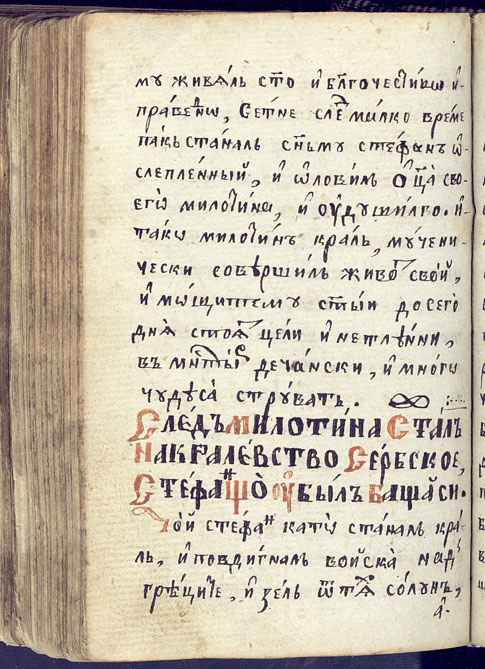 му живѧль ст҃о и бл҃гочестиви и-
праведнѡ, Сетне след малко време
пакь станаль сн҃ьму стефанъ ѡ-
слепленный, и ѡловиль ѻц҃а сво-
его милѹтина, и ѹдушилго. и
такѡ милѹтинъ краль, мучени-
чески совѣршиль живот свой,
и мощитему ст҃ыи до сего
днѧ стоѧт цели и нетлѣнни,
въ мнт҃ыр дечански, и многѡ
чудѣса струвать.
Следъ милоти́на Сталъ
Накралевство Сербское,
Стефан що ѹбыль Бащаси.
Той стефан катѡ станаль кра-
ль, и повдигналь войска над
грѣците, и зель ѿ тѧх солунъ,
а҃-